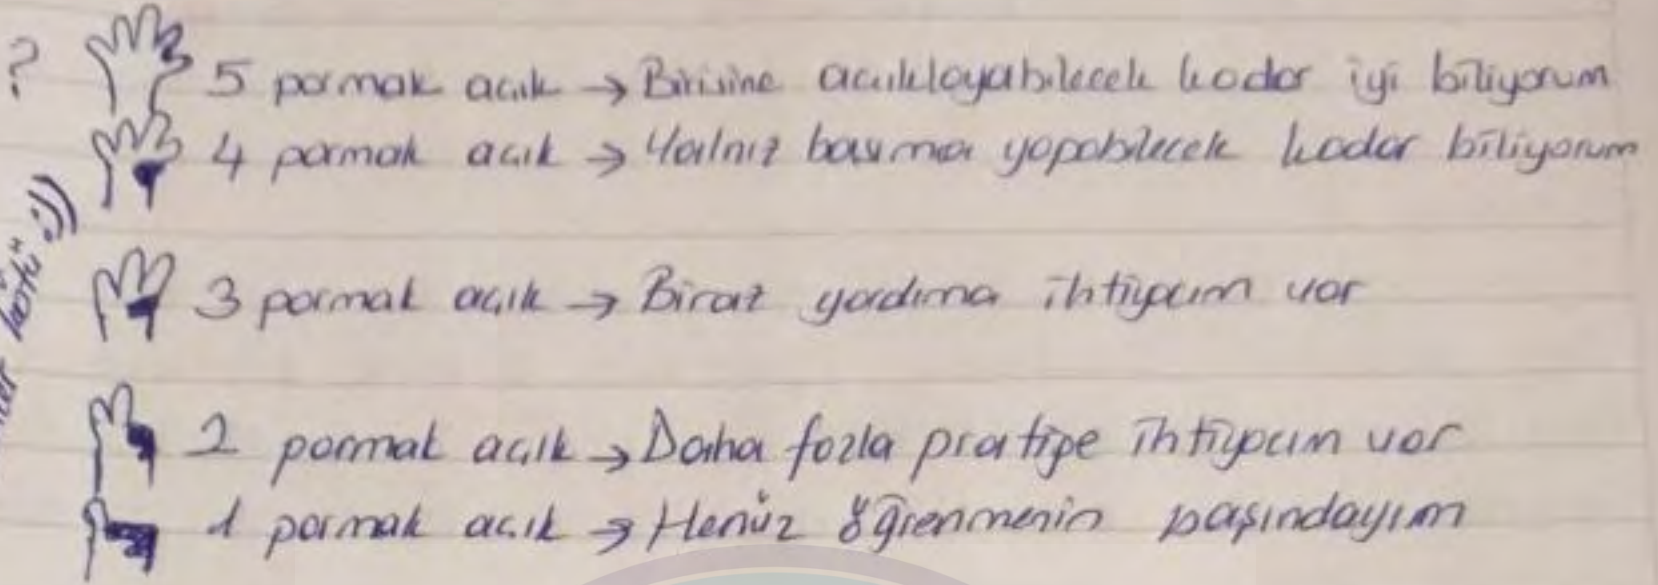 ?
5 parmak açık → Birisine açıklayabilecek kadar iyi biliyorum
4 parmak açık → Yalnız başıma yapabilecek kadar biliyorum
kötü" :))
3 parmak açık → Biraz yardıma ihtiyacım var
2 parmak açık → Daha fazla pratiğe ihtiyacım var
1 parmak açık → Henüz öğrenmenin başındayım